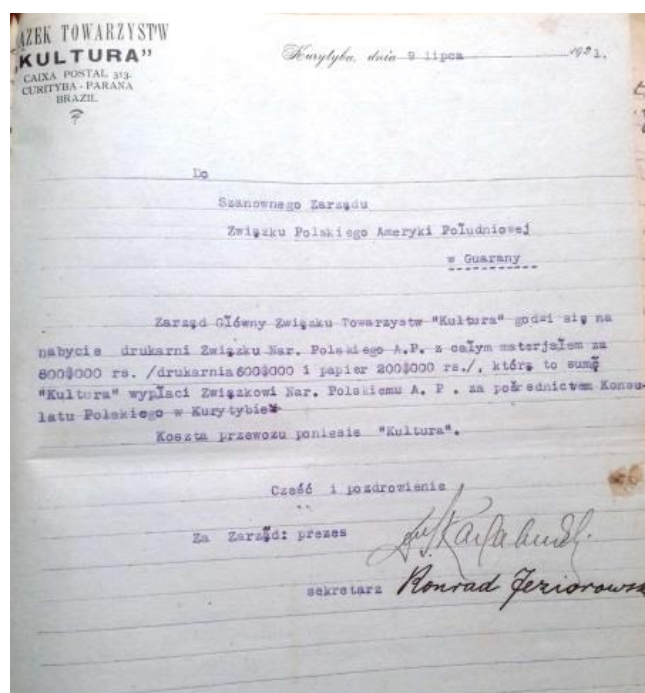 ĄZEK TOWARZYSTW
„KULTURA”
CAIXA POSTAL 313.
CURITYBA - PARANA
BRAZIL
Kurytyba, dnia 9 lipca 1921.
Do
Szanownego Zarządu
Związku Polskiego Ameryki Południowej
w Guarany
Zarząd Główny Związku Towarzystw "Kultura" godzi się na
nabycie drukarni Związku Nar. Polskiego A.P. z całym materjałem za
800$000 rs. /drukarnia 600$000 i papier 200$000 rs./, którą to sumę
"Kultura" wypłaci Związkowi Nar. Polskiemu A. P . za pośrednictwem Konsu-
latu Polskiego w Kurytybie
Koszta przewozu poniesie "Kultura".
Cześć i pozdrowienie
Za Zarząd: prezes
sekretarz Konrad Jeziorowsk